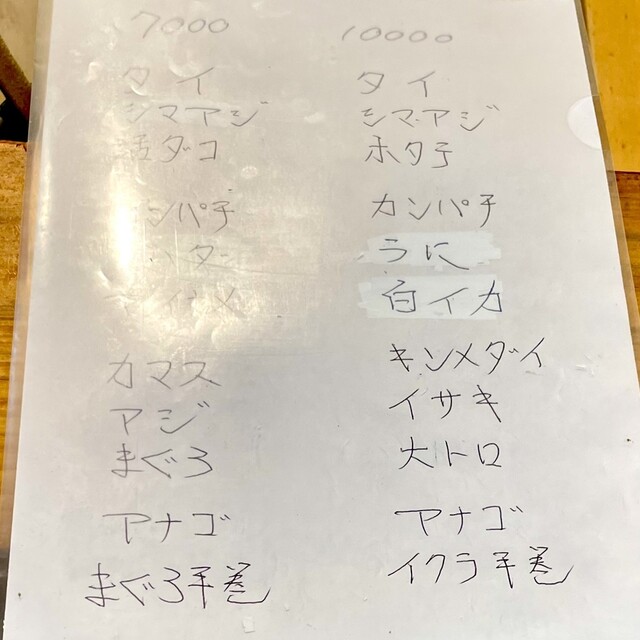 7000
タイ
シマアジ
活ダコ
ンパチ
カマス
アジ
まぐろ
アナゴ
まぐろ手巻
10000
タイ
シマアジ
ホタテ
カンパチ
うに
白イカ
キンメダイ
イサキ
大トロ
アナゴ
イクラ手巻